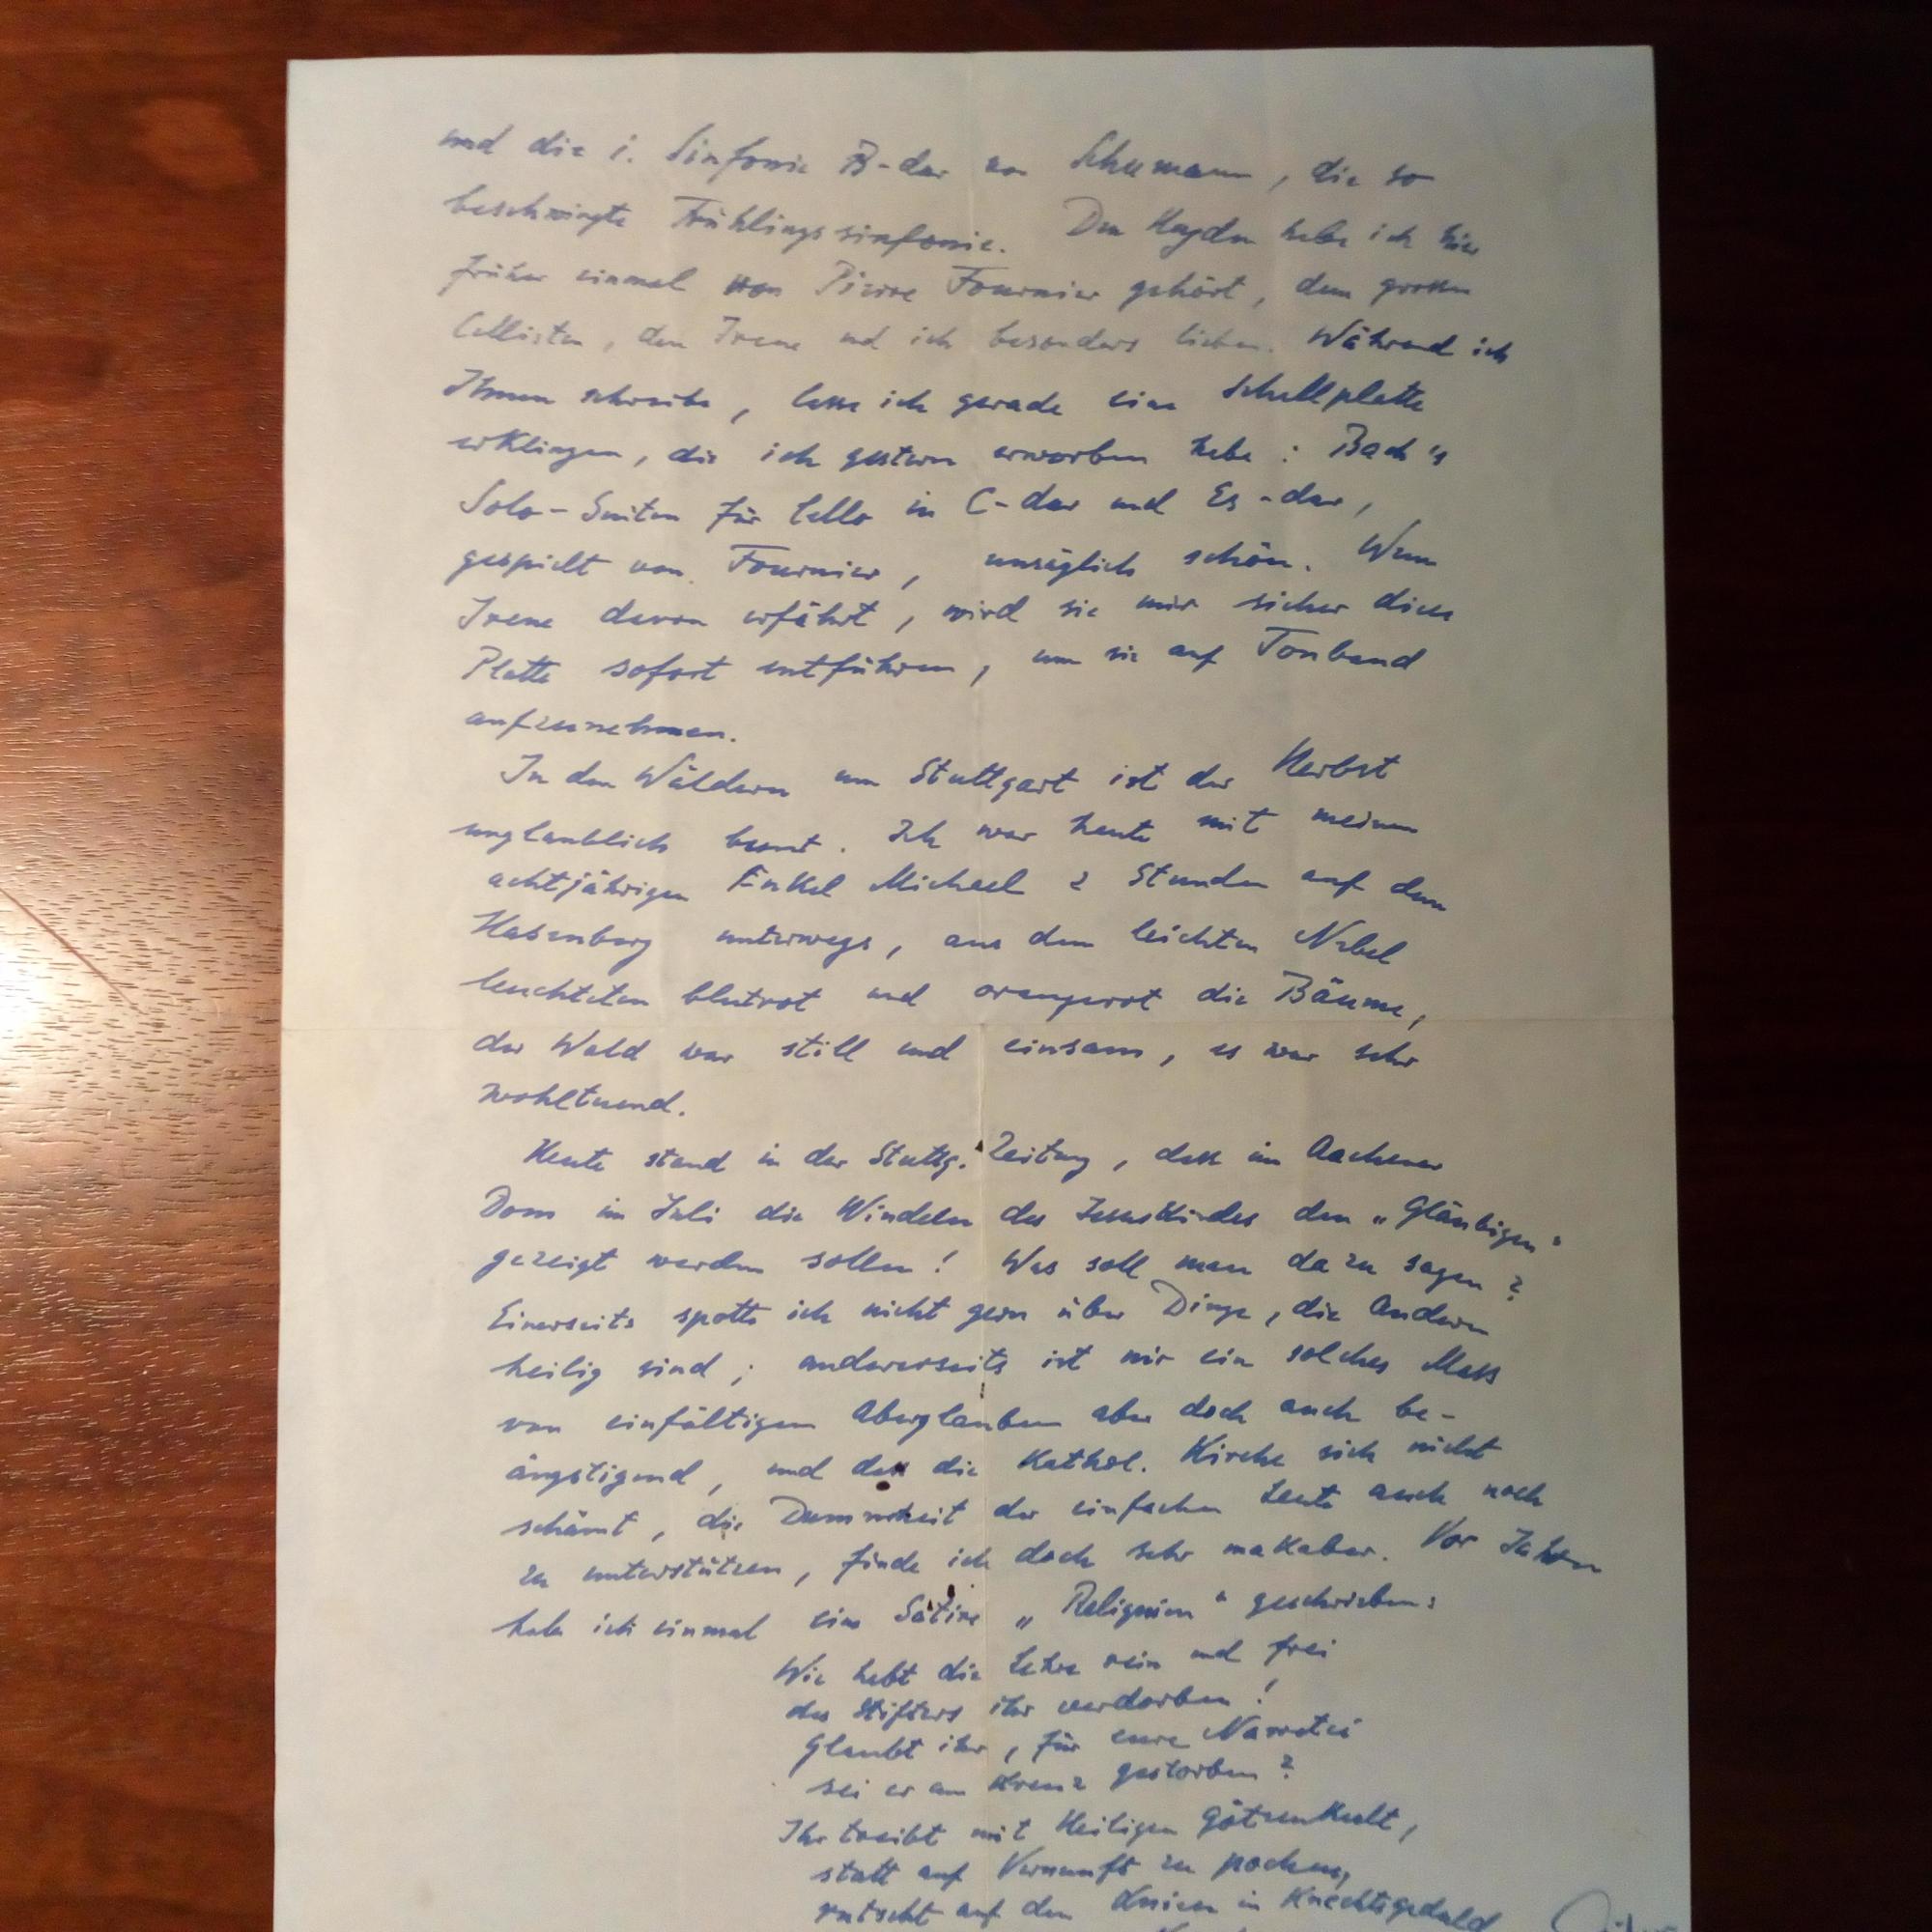 und die 1. Sinfonie B-dur von Schumann, die so
beschwingte Frühlingssinfonie. Den Haydn habe ich hier
früher einmal von Pierre Fournier gehört, dem grossen
Cellisten, den Irene und ich besonders lieben. Während ich
Ihnen schreibe, lasse ich gerade eine Schallplatte
erklingen, die ich gestern erworben habe: Bach's
Solo-Suiten für Cello in C-dur und Es-dur,
gespielt von Fournier, unsäglich schön. Wenn
Irene davon erfährt, wird sie mir sicher diese
Platte sofort entführen, um sie auf Tonband
aufzunehmen.
In den Wäldern um Stuttgart ist der Herbst
unglaublich bunt. Ich war heute mit meinem
achtjährigen Enkel Michael 2 Stunden auf dem
Hasenberg unterwegs, aus dem leichten Nebel
leuchteten blutrot und orangerot die Bäume,
der Wald war still und einsam, es war sehr
wohltuend.
Heute stand in der Stuttg. Zeitung, dass im Aachener
Dom im Juli die Windeln des Jesuskindes den „Gläubigen"
gezeigt werden sollen! Was soll man dazu sagen?
Einerseits spotte ich nicht gern über Dinge, die Andern
heilig sind; andererseits ist mir ein solches Mass
von einfältigem Aberglauben aber doch auch be-
ängstigend, und dass die Kathol. Kirche sich nicht
schämt, die Dummheit der einfachen Leute auch noch
zu unterstützen, finde ich doch sehr makaber. Vor Jahren
habe ich einmal eine Satire „Reliquien" geschrieben:
Wie habt die Lehre rein und frei
des Stifters ihr verdorben!
Glaubt ihr, für eure Narretei
sei er am Kreuz gestorben?
Ihr treibt mit Heiligen Götzenkult,
statt auf Vernunft zu pochen,
rutscht auf den Knieen in Knechtsgeduld